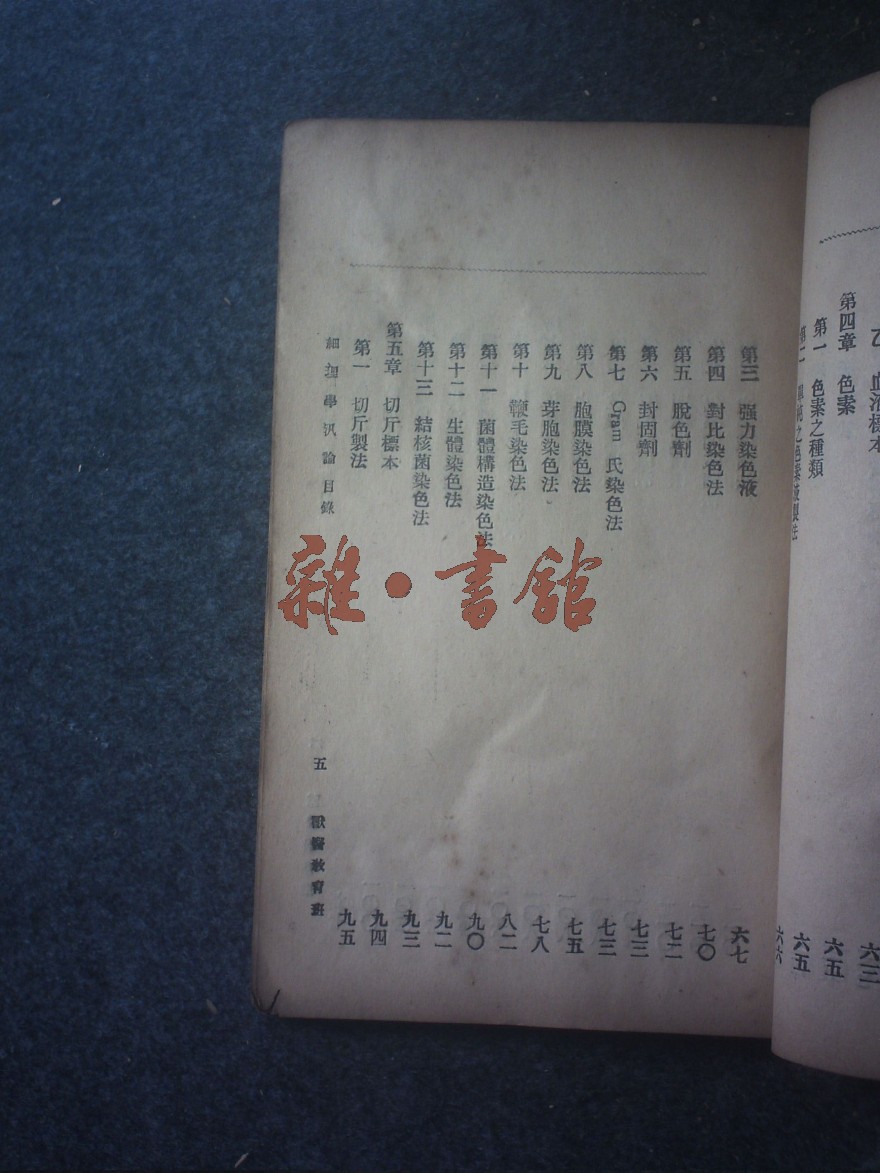 乙 血液標本 六三
第四章 色素 六五
第一 色素之種類 六五
之色素液製法 六六
第三 强力染色液 六七
第四 對比染色法 七〇
第五 脫色劑 七二
第六 封固劑 七三
第七 Gram 氏染色法 七三
第八 胞膜染色法 七五
第九 芽胞染色法 七八
第十 鞭毛染色法 八二
第十一 菌體構造染色法 九〇
第十二 生體染色法 九二
第十三 結核菌染色法 九三
第五章 切斤標本 九四
第一 切斤製法 九五
細 學汎論目錄 五 獸醫教育班
雜·書館